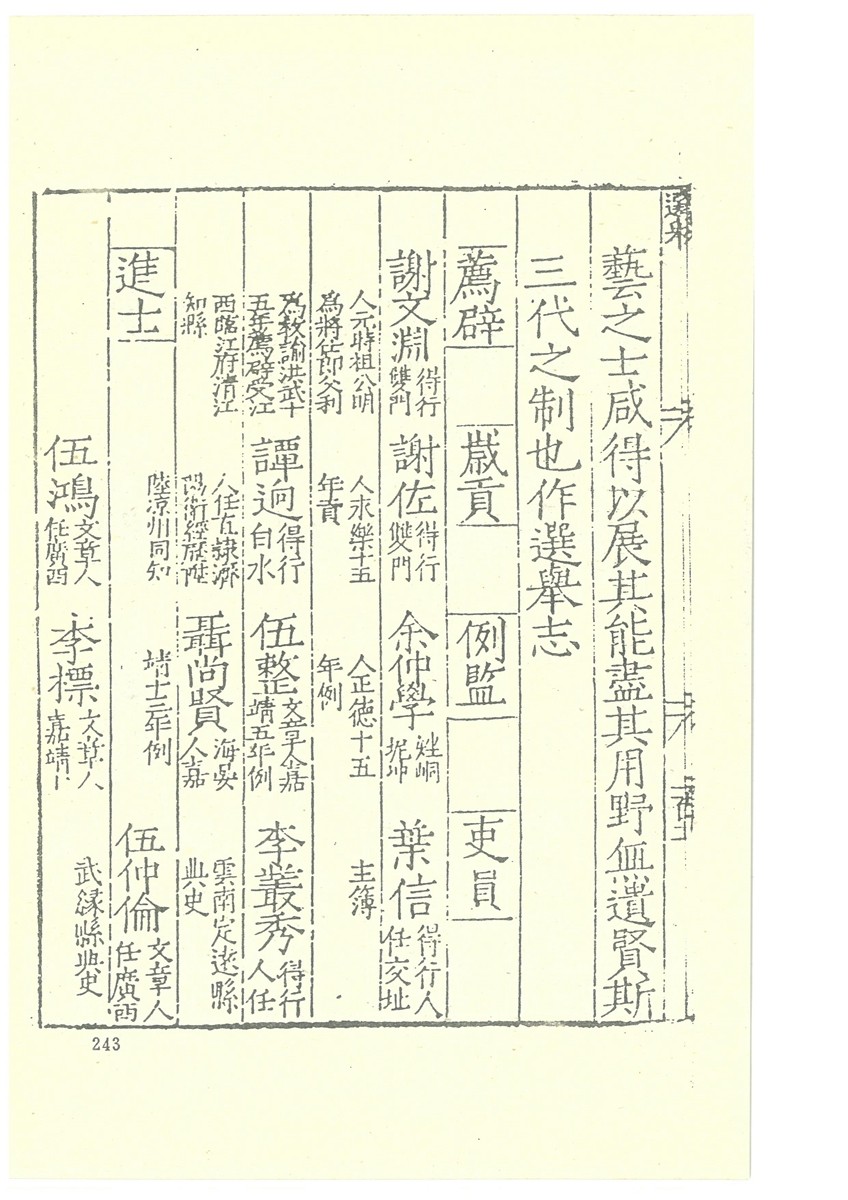 選舉
藝之士咸得以展其能盡其用野無遺賢斯
三代之制也作選舉志
薦辟 歲貢 例監 吏員
謝文淵 得行雙門 謝佐 得行雙門 余仲學 葉信 得行人任交址
人元時祖公明為將仕郎父利 人永樂十五年貢 人正德十五年例 主簿
為教諭洪武十五年薦辟受江 譚迥 得行白水 伍整 文章人嘉靖五年例 李叢秀 得行人任
西臨江府清江知縣 人任直隸 衛經歷陞 聶尚賢 海晏人嘉 雲南定遠縣典史
進士 陸凉州同知 靖士三年例 伍仲倫 文章人任廣西
伍鴻 文章人任廣西 李標 文章人嘉靖 武緣縣典史
243